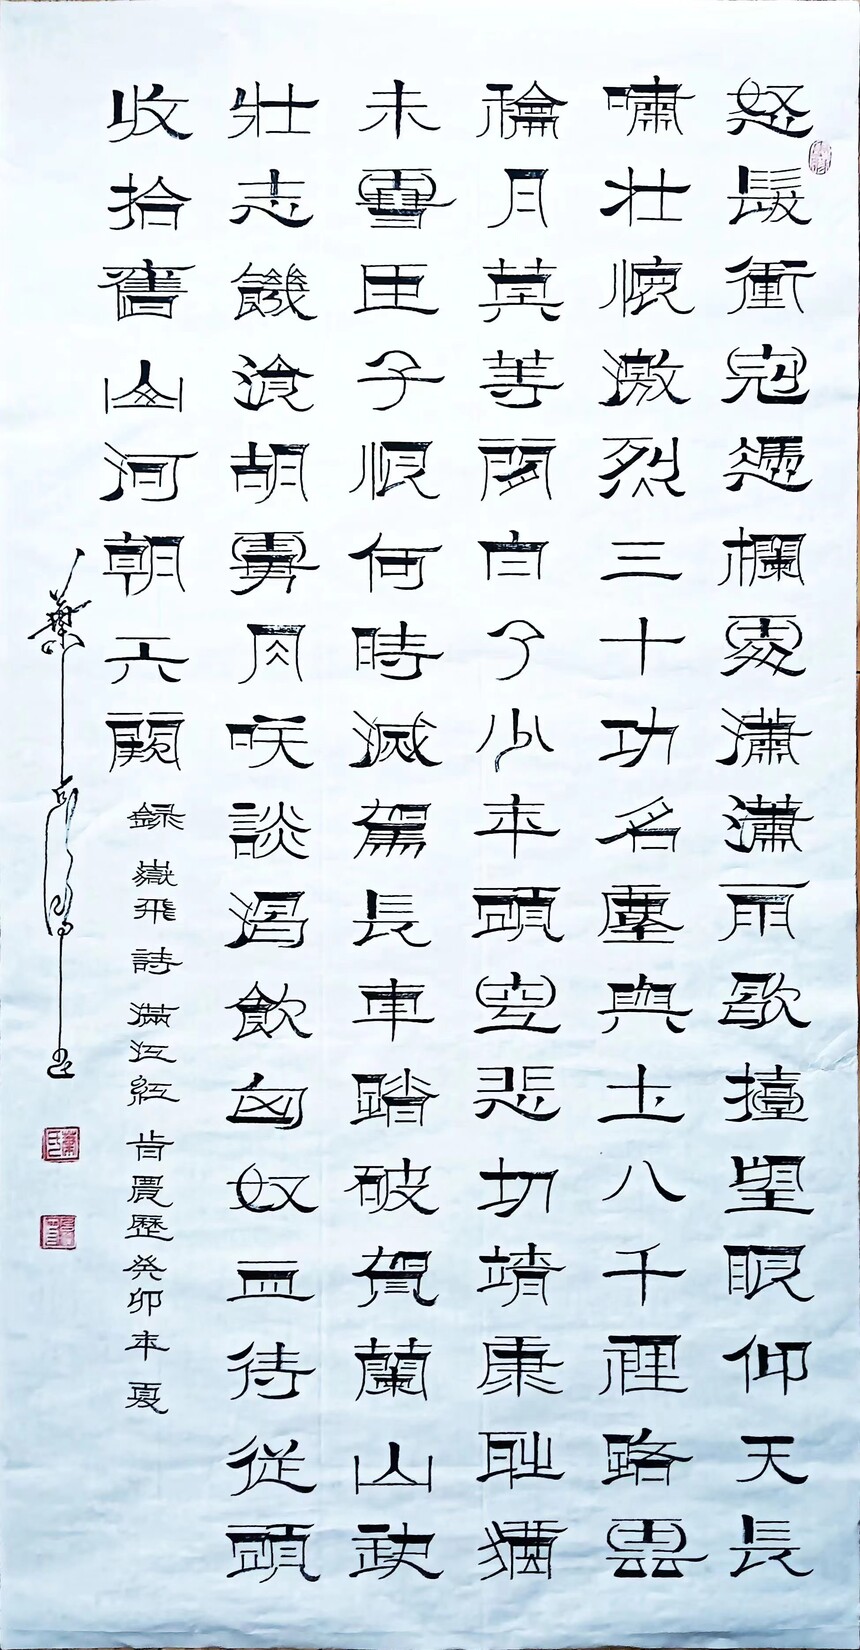 怒髮衝冠憑欄處瀟瀟雨歇擡望眼仰天長
嘯壯懷激烈三十功名塵與土八千裡路雲
龢月莫等閒白了少年頭空悲切靖康耻猶
未雪臣子恨何時滅駕長車踏破賀蘭山缺
壯志饑湌胡虜肉咲談渴飲匈奴血待從頭
收拾舊山河朝天闕 録嶽飛詩滿江紅 旹農歷癸卯年夏